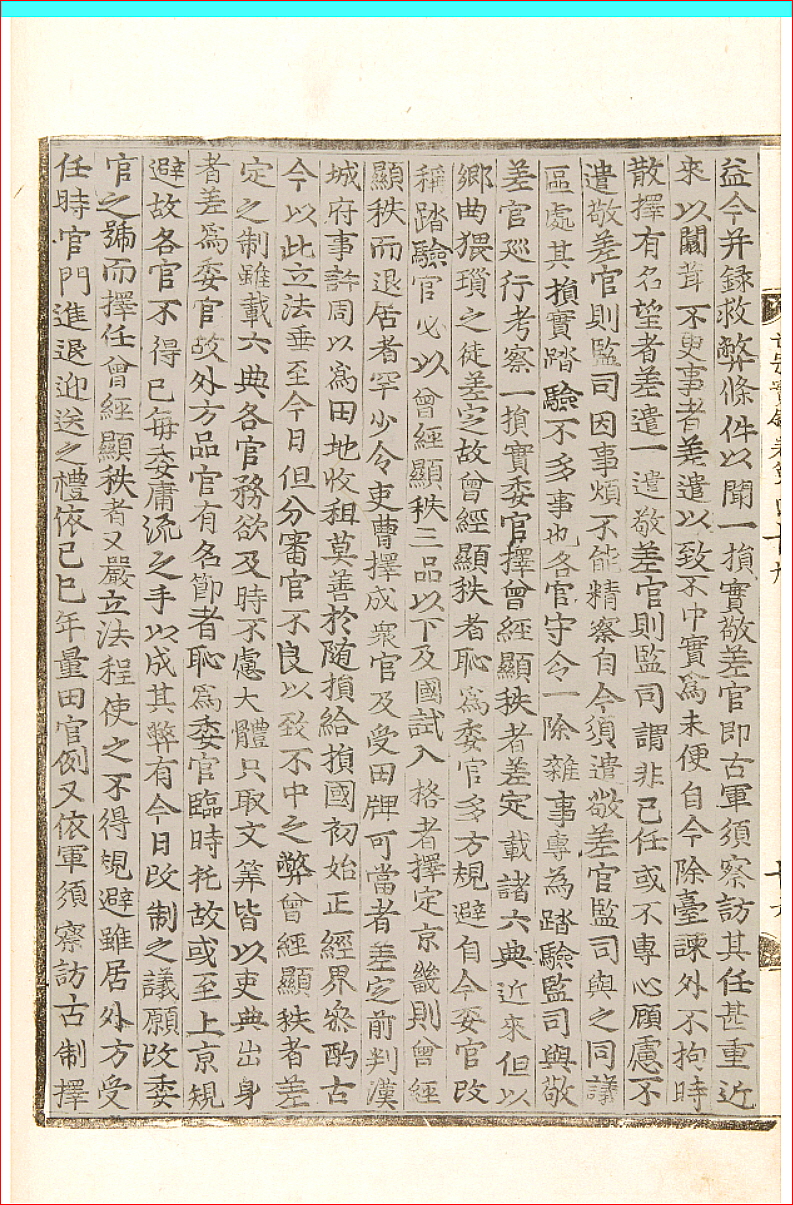 益今并録救弊條件以聞一損實敬差官即古軍須察訪其任甚重近
來以闒茸不更事者差遣以致不中實爲未便自今除臺諫外不拘時
散擇有名望者差遣一遣敬差官則監司謂非己任或不專心願慮不
遣敬差官則監司因事煩不能精察自今須遣敬差官監司與之同議
區處其損實踏驗不多事也各官守令一除雜事專為踏驗監司與敬
差官巡行考察一損實委官擇曾經顯秩者差定載諸六典近來但以
鄕曲猥瑣之徒差定故曾經顯秩者恥爲委官多方規避自今委官改
稱踏驗官必以曾經顯秩三品以下及國試入格者擇定京畿則曾經
顯秩而退居者罕少令吏曹擇成衆官及受田牌可當者差定前判漢
城府事許周以爲田地收租莫善於隨損給損國初始正經界叅酌古
今以此立法垂至今日但分審官不良以致不中之弊曾經顯秩者差
定之制雖載六典各官務欲及時不慮大體只取文筭皆以吏典出身
者差爲委官故外方品官有名節者恥爲委官臨時托故或至上京規
避故各官不得已每委庸流之手以成其弊有今日改制之議願改委
官之號而擇任曾經顯秩者又嚴立法程使之不得規避雖居外方受
任時官門進退迎送之禮依己巳年量田官例又依軍須察訪古制擇